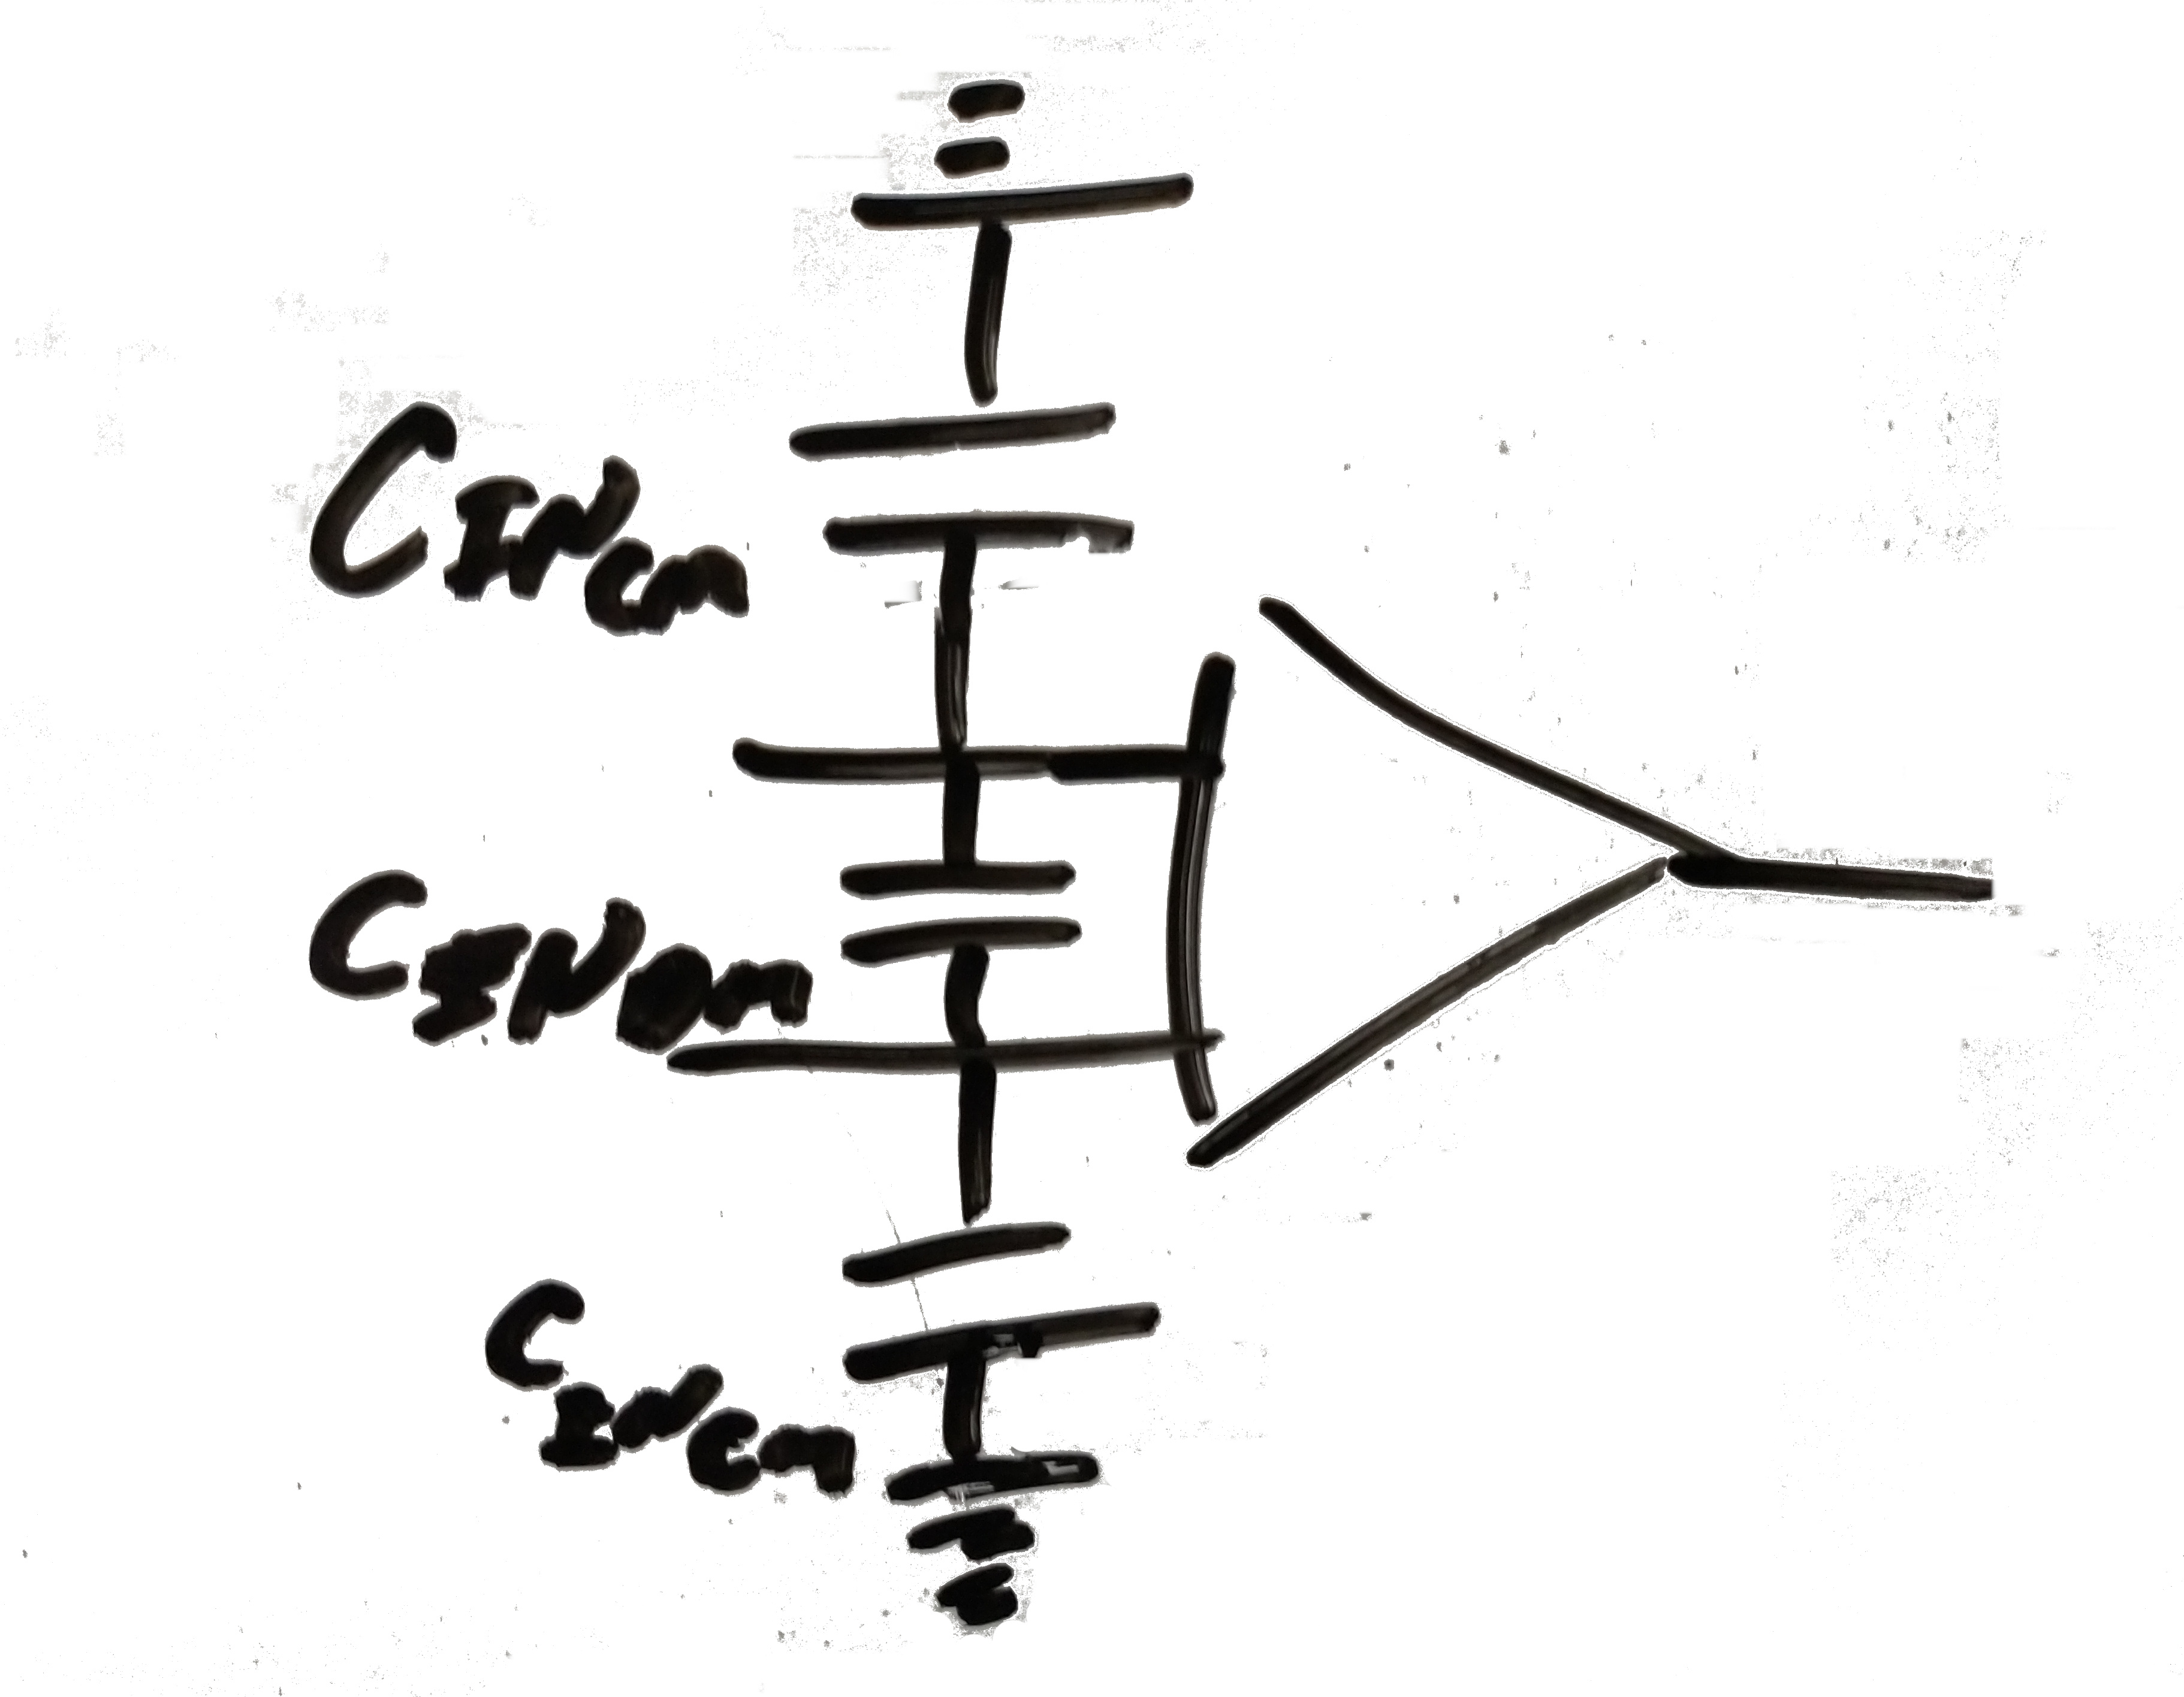 CINCM
CINDM
CINCM